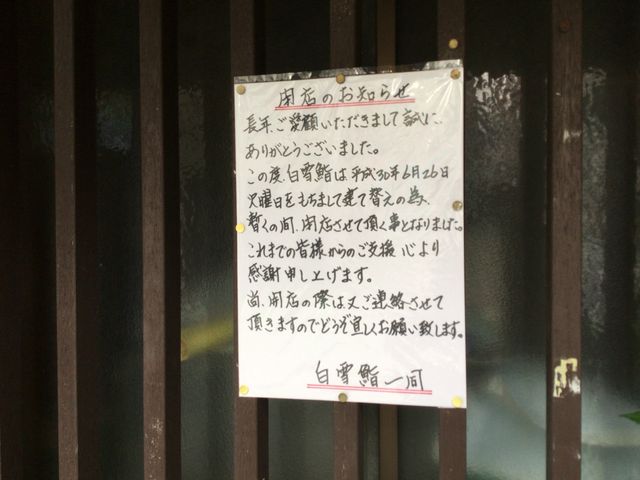 閉店のお知らせ
長年、ご愛顧いただきまして誠に、
ありがとうございました。
この度、白雪鮨は平成30年6月26日
火曜日をもちまして建て替えの為、
暫くの間、閉店させて頂く事となりました。
これまでの皆様からのご支援 心より
感謝申し上げます。
尚、開店の際は又ご連絡させて
頂きますのでどうぞ宜しくお願い致します。
白雪鮨一同